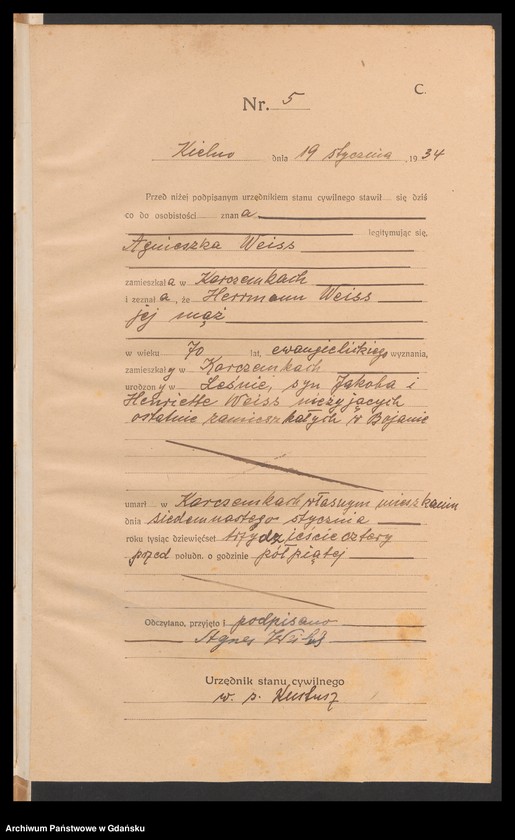 C.
Nr. 5
Kielno dnia 19 stycznia 1934
Przed niżej podpisanym urzędnikiem stanu cywilnego stawił się dziś
co do osobistości znana
legitymując się,
Agnieszka Weiss
zamieszkała w Karczemkach
i zeznała, że Herrmann Weiss
jej mąż
w wieku 70 lat, ewangielickiego wyznania,
zamieszkały w Karczemkach
urodzony w Leśnie, syn Jakoba i
Henriette Weiss nieżyjących
ostatnie zamieszkałych w Bojanie
umarł w Karczemkach własnym mieszkaniu
dnia siedemnastego stycznia
roku tysiąc dziewięćset trzydzieściecztery
przed połudn. o godzinie półpiątej
Odczytano, przyjęto i podpisano
Agnes Weiß
Urzędnik stanu cywilnego
w. z.
Archiwum Państwowe w Gdańsku